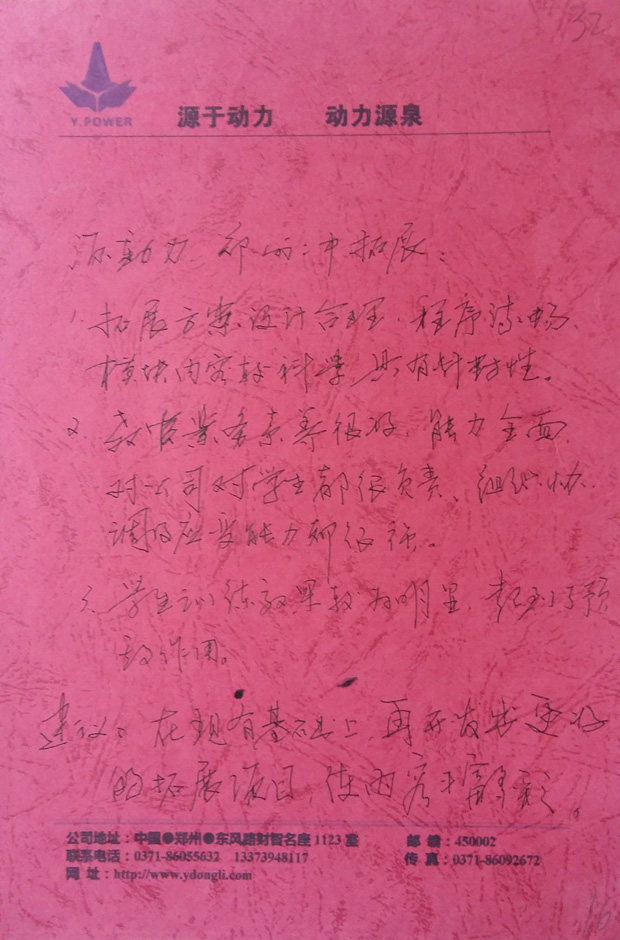 32
Y.POWER
源于动力 动力源泉
源动力
拓展:
1. 拓展方案设计合理、程序流畅、
模块内容较科学 具有针对性。
2. 教官业务素养很好,能力全面
对公司对学生都很负责、组织协
调及应变能力都很强。
3. 学生训练效果较为明显,起到了预
作用。
建议:在现有基础上,再开发出更好
的拓展项目 使内容丰富多彩。
公司地址:中國●郑州●东风路财智名座1123室 邮 编:450002
联系电话:0371-86055632 13373948117 传 真:0371-86092672
网 址:http://www.ydongli.com
16